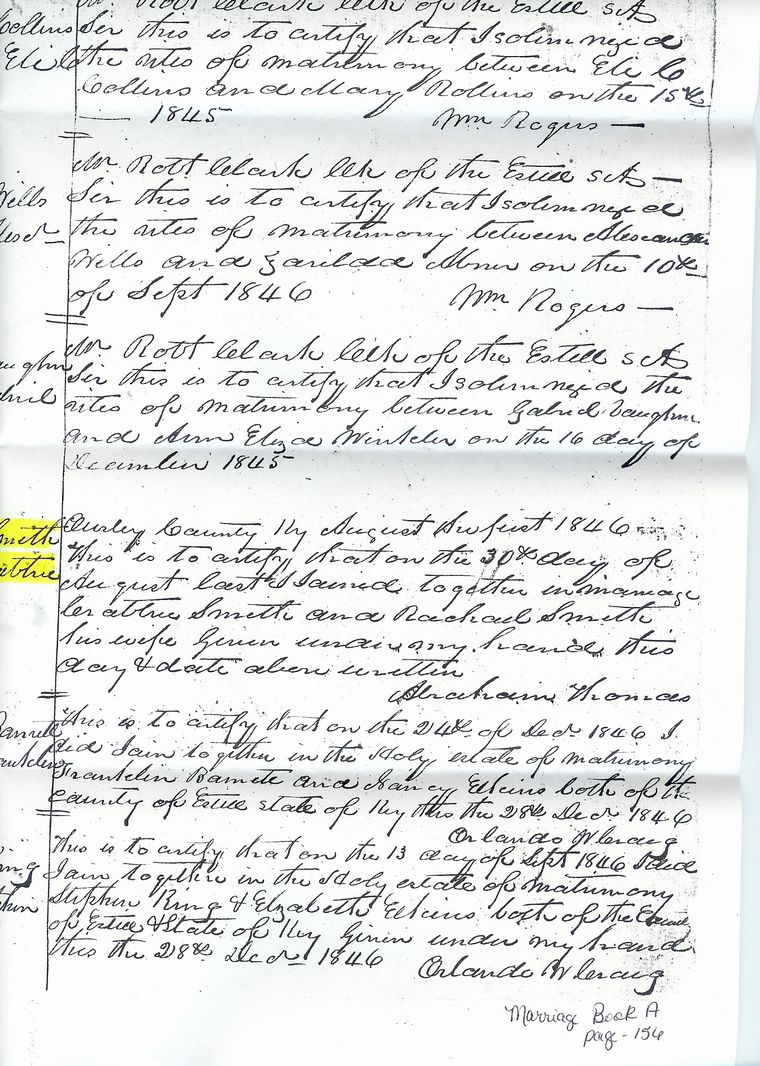 Mr. Robt Clark Clk of the Estill sct
Collins Sir this is to certify that I solemnized
Eli C the rites of matrimony between Eli C
Collins and Mary Rollins on the 15th
— 1845 Wm Rogers —
Mr Robt Clark Clk of the Estill sct —
Wells Sir this is to certify that I solemnized
the rites of matrimony between Alexander
Wells and Zarilda Abner on the 10th
of Sept 1846 Wm Rogers —
Mr. Robt Clark Clk of the Estill sct
Sir this is to certify that I solemnized the
rites of matrimony between Gabriel Vaughn
and Ann Eliza Winkler on the 16 day of
December 1845
Smith Owsley County Ky August 1846
This is to certify that on the 30th day of
August last I Joined together in marriage
Crabtree Smith and Rachael Smith
his wife Given under my hand this
day & date above written
Abraham Thomas
This is to certify that on the 24th of Decr 1846 I
did Join together in the Holy estate of matrimony
Franklin Barnett and Nancy Elkins both of the
County of Estill state of Ky this the 28th Decr 1846
Orlando W Craig
This is to certify that on the 13 day of Sept 1846 I did
Join together in the Holy estate of matrimony
Stephen King & Elizabeth Elkins both of the
of Estill & State of Ky Given under my hand
this the 28th Decr 1846 Orlando W Craig
Marriage Book A
page - 156